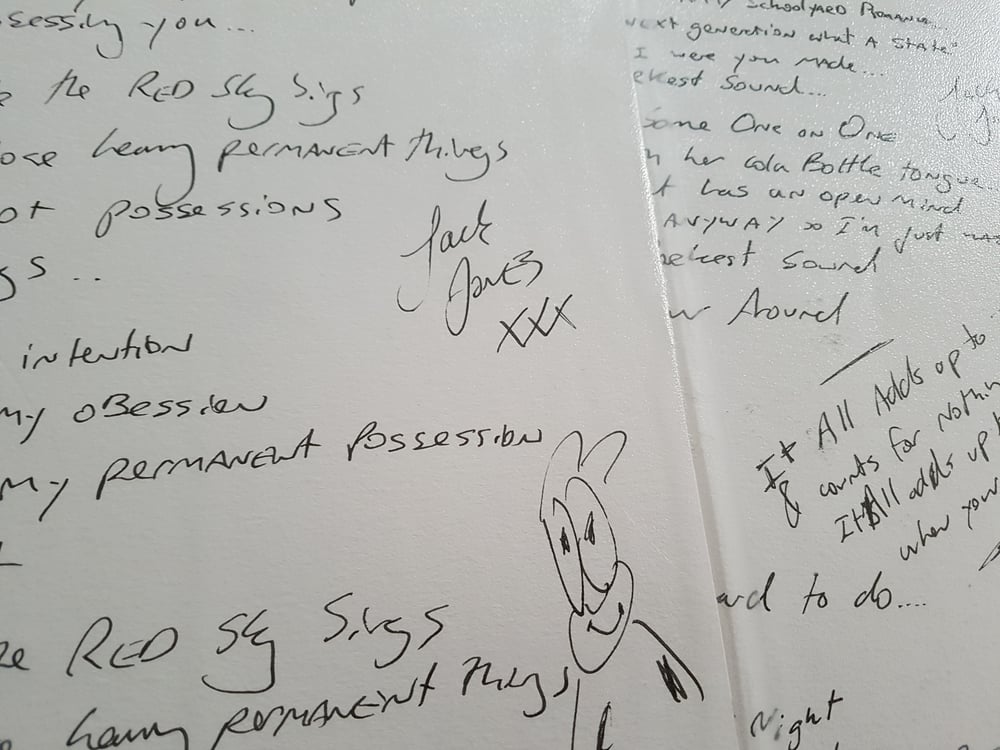 sessing you...
the RED Sky Sings
heavy PERMANENT things
possessions
gs ..
Jack
Jones
XXX
intention
my oBession
my PERMANENT Possession
RED Sky Sings
heavy PERMANENT things
SchoolyaRD Romance...
next generation what A State"
I were you made...
ekest Sound...
some One on One
her cola Bottle tongue...
has an open mind
ANYWAY so I'm just
ekest Sound
Around
It All Adds up to
& counts for Nothin
It All adds up t
when your
to do....
Night